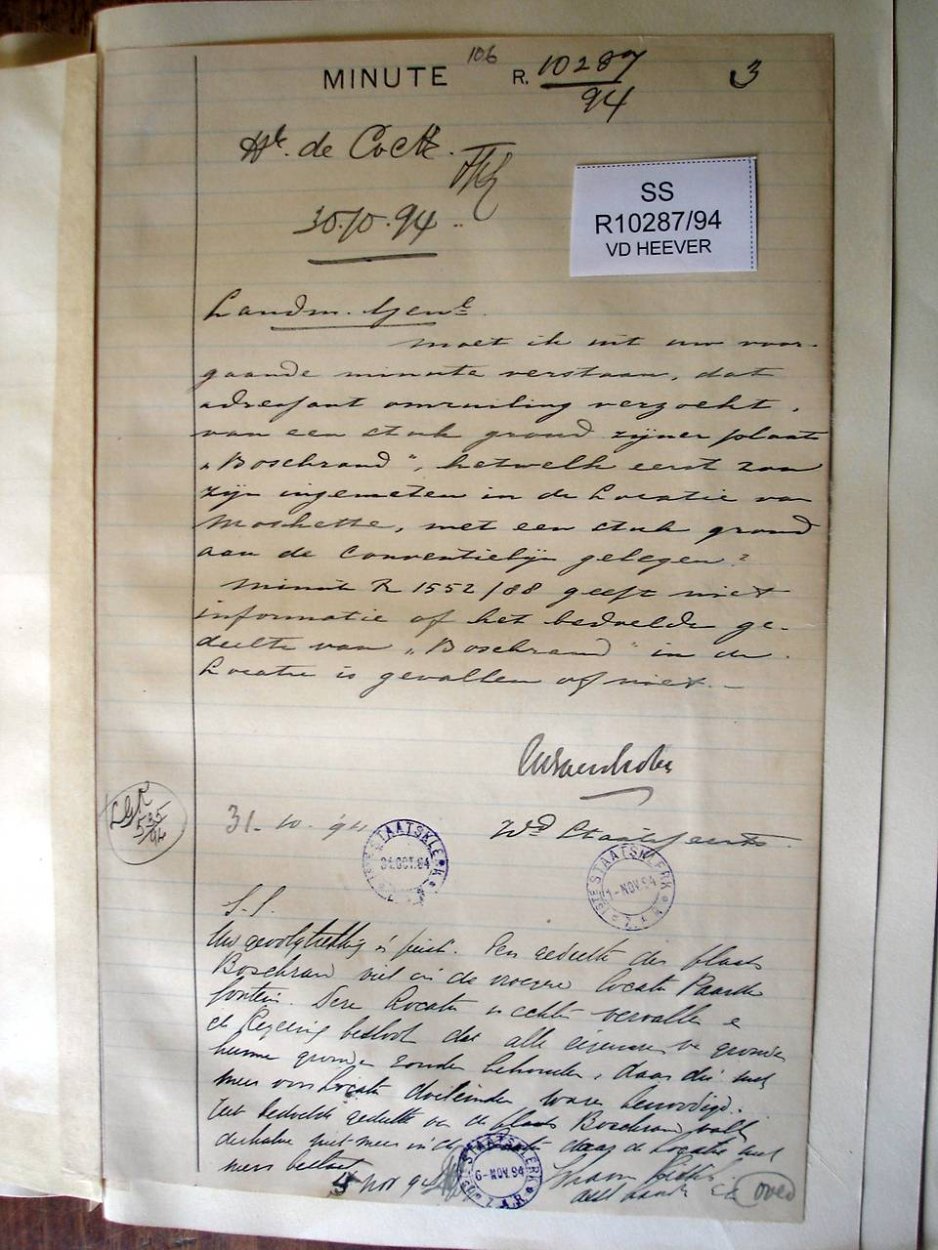 106
MINUTE R. 10287/94 3
de Cock.
30.10.94
SS
R10287/94
VD HEEVER
Landm. Genl.
moet ik uit uw voor-
gaande minute verstaan, dat
adressant omruiling verzoekt,
van een stuk grond zijner plaats
„Boschrand“, hetwelk eerst zou
zijn ingemeten in de Locatie van
Moshette, met een stuk grond
aan de Conventielijn gelegen?
Minute R 1552/88 geeft niet
informatie of het bedoelde ge-
deelte van „Boschrand“ in de
Locatie is gevallen of niet.—
LGR
535/94
31.10.94
Wd. Staatssecrts.
STAATSKLERK
31 OCT. 94
1STE STAATSKLERK
1-NOV 94
Z.A.R.
S.S.
Uw gevolgtrekking is juist. Een gedeelte der plaats
Boschrand viel in de vroegere Locatie Paarde
fontein. Deze Locatie is echter vervallen e
de Regeering besloot dat alle eigenaren de gronden
hunne gronden zouden behouden, daar die niet
meer voor Locatie doeleinden waren benoodigd.
Het bedoelde gedeelte van de plaats Boschrand valt
derhalve niet meer in de Locatie daar de Locatie niet
meer bestaat
5 Nov 94
STAATSKLERK
6-NOV 94
Z.A.R.
over